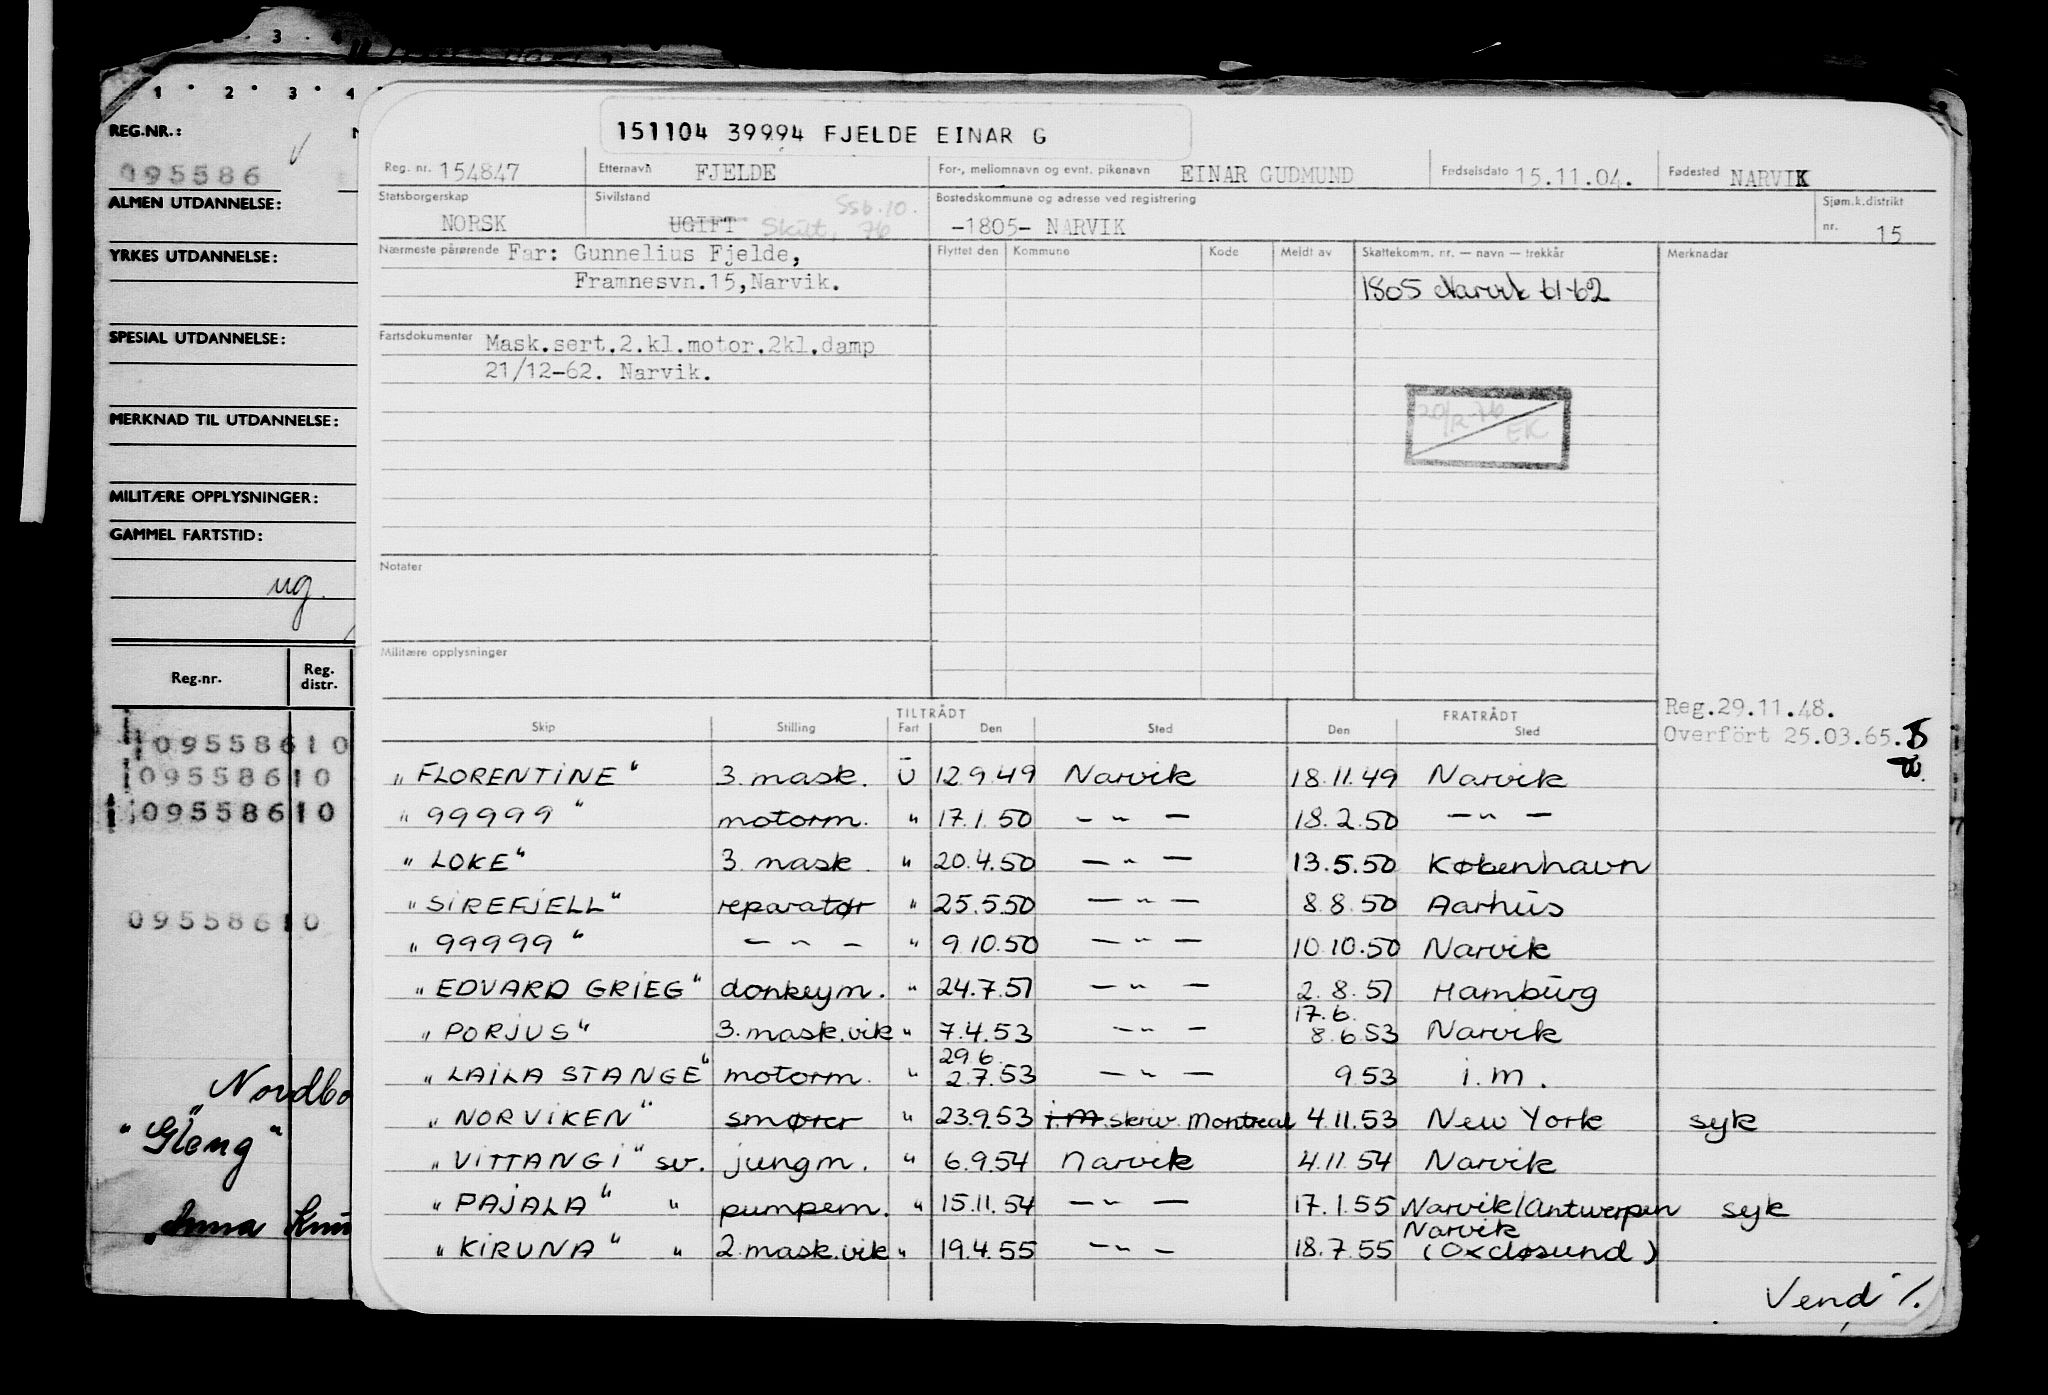 1 2 3 4
3
REG.NR.:
095586
ALMEN UTDANNELSE:
YRKES UTDANNELSE:
SPESIAL UTDANNELSE:
MERKNAD TIL UTDANNELSE:
MILITÆRE OPPLYSNINGER:
GAMMEL FARTSTID:
ug.
Reg.nr. Reg. distr.
09558610
09558610
09558610
09558610
Nordbo
"Gleng"
"Anna Knu
151104 39994 FJELDE EINAR G
Reg. nr. 154847 Etternavn FJELDE For-, mellomnavn og evnt. pikenavn EINAR GUDMUND Fødselsdato 15.11.04. Fødested NARVIK
Statsborgerskap Sivilstand Ssb.10. Bostedskommune og adresse ved registrering Sjøm.k.distrikt
NORSK UGIFT Skilt, 76 -1805- NARVIK nr. 15
Nærmeste pårørende Far: Gunnelius Fjelde, Flyttet den Kommune Kode Meldt av Skattekomm. nr. — navn — trekkår Merknader
Framnesvn.15,Narvik. 1805 Narvik 61-62
Fartsdokumenter Mask.sert.2.kl.motor.2kl.damp
21/12-62. Narvik.
20/12-76 EK
Notater
Militære opplysninger
Reg.29.11.48.
Overført 25.03.65.
TILTRÅDT FRATRÅDT
Skip Stilling Fart Den Sted Den Sted
"FLORENTINE" 3. mask. U 12.9.49 Narvik 18.11.49 Narvik
"99999" motorm. " 17.1.50 — " — 18.2.50 — " —
"LOKE" 3. mask. " 20.4.50 — " — 13.5.50 København
"SIREFJELL" reparatør " 25.5.50 — " — 8.8.50 Aarhus
"99999" — " — " 9.10.50 — " — 10.10.50 Narvik
"EDVARD GRIEG" donkeym. " 24.7.51 — " — 2.8.51 Hamburg
17.6.
"PORJUS" 3. mask.vik " 7.4.53 — " — 8.6.53 Narvik
29.6.
"LAILA STANGE" motorm. " 2.7.53 — " — 9.53 i.m.
"NORVIKEN" smører " 23.9.53 i.m. skriv Montreal 4.11.53 New York syk
"VITTANGI" sv. jungm. " 6.9.54 Narvik 4.11.54 Narvik
"PAJALA" " pumpem. " 15.11.54 — " — 17.1.55 Narvik/Antwerpen syk
Narvik
"KIRUNA" " 2. mask.vik " 19.4.55 — " — 18.7.55 (Oxeløsund)
Vend ./.